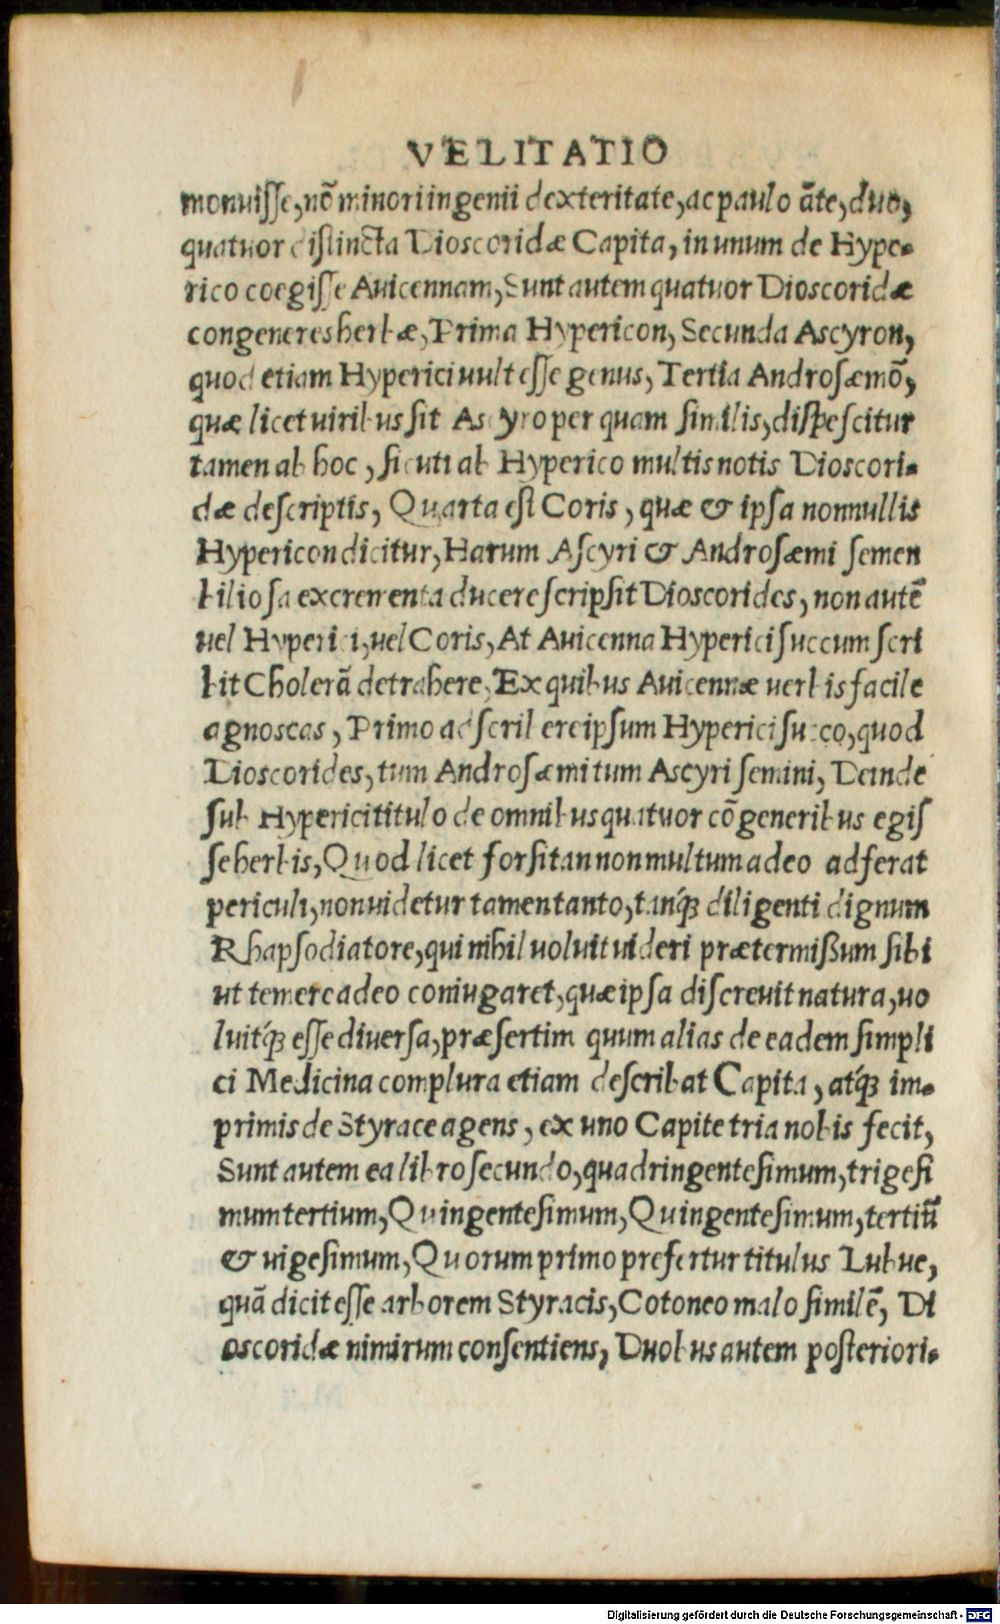 VELITATIO
monuisse, nõ minori ingenii dexteritate, ac paulo ãte, duo,
quatuor distincta Dioscoridæ Capita, in unum de Hype-
rico coegisse Auicennam, Sunt autem quatuor Dioscoridæ
congeneres herbæ, Prima Hypericon, Secunda Ascyron,
quod etiam Hyperici uult esse genus, Tertia Androsæmõ,
quæ licet uiribus sit Ascyro per quam similis, dispescitur
tamen ab hoc, sicuti ab Hyperico multis notis Dioscori-
dæ descriptis, Quarta est Coris, quæ & ipsa nonnullis
Hypericon dicitur, Harum Ascyri & Androsæmi semen
biliosa excrementa ducere scripsit Dioscorides, non autẽ
uel Hyperici, uel Coris, At Auicenna Hyperici succum scri
bit Cholerã detrahere, Ex quibus Auicennæ uerbis facile
agnoscas, Primo adscribere ipsum Hyperici succo, quod
Dioscorides, tum Androsæmi tum Ascyri semini, Deinde
sub Hyperici titulo de omnibus quatuor cõgeneribus egis
se herbis, Quod licet forsitan non multum adeo adferat
periculi, non uidetur tamen tanto, tanq́; diligenti dignum
Rhapsodiatore, qui nihil uoluit uideri prætermißum sibi
ut temere adeo coniugaret, quæ ipsa discreuit natura, uo
luitq́; esse diuersa, præsertim quum alias de eadem simpli
ci Medicina complura etiam describat Capita, atq́; im-
primis de Styrace agens, ex uno Capite tria nobis fecit,
Sunt autem ea libro secundo, quadringentesimum, trigesi
mum tertium, Quingentesimum, Quingentesimum, tertiũ
& uigesimum, Quorum primo prefertur titulus Lubue,
quã dicit esse arborem Styracis, Cotoneo malo similẽ, Di
oscoridæ nimirum consentiens, Duobus autem posteriori-
Digitalisierung gefördert durch die Deutsche Forschungsgemeinschaft - DFG